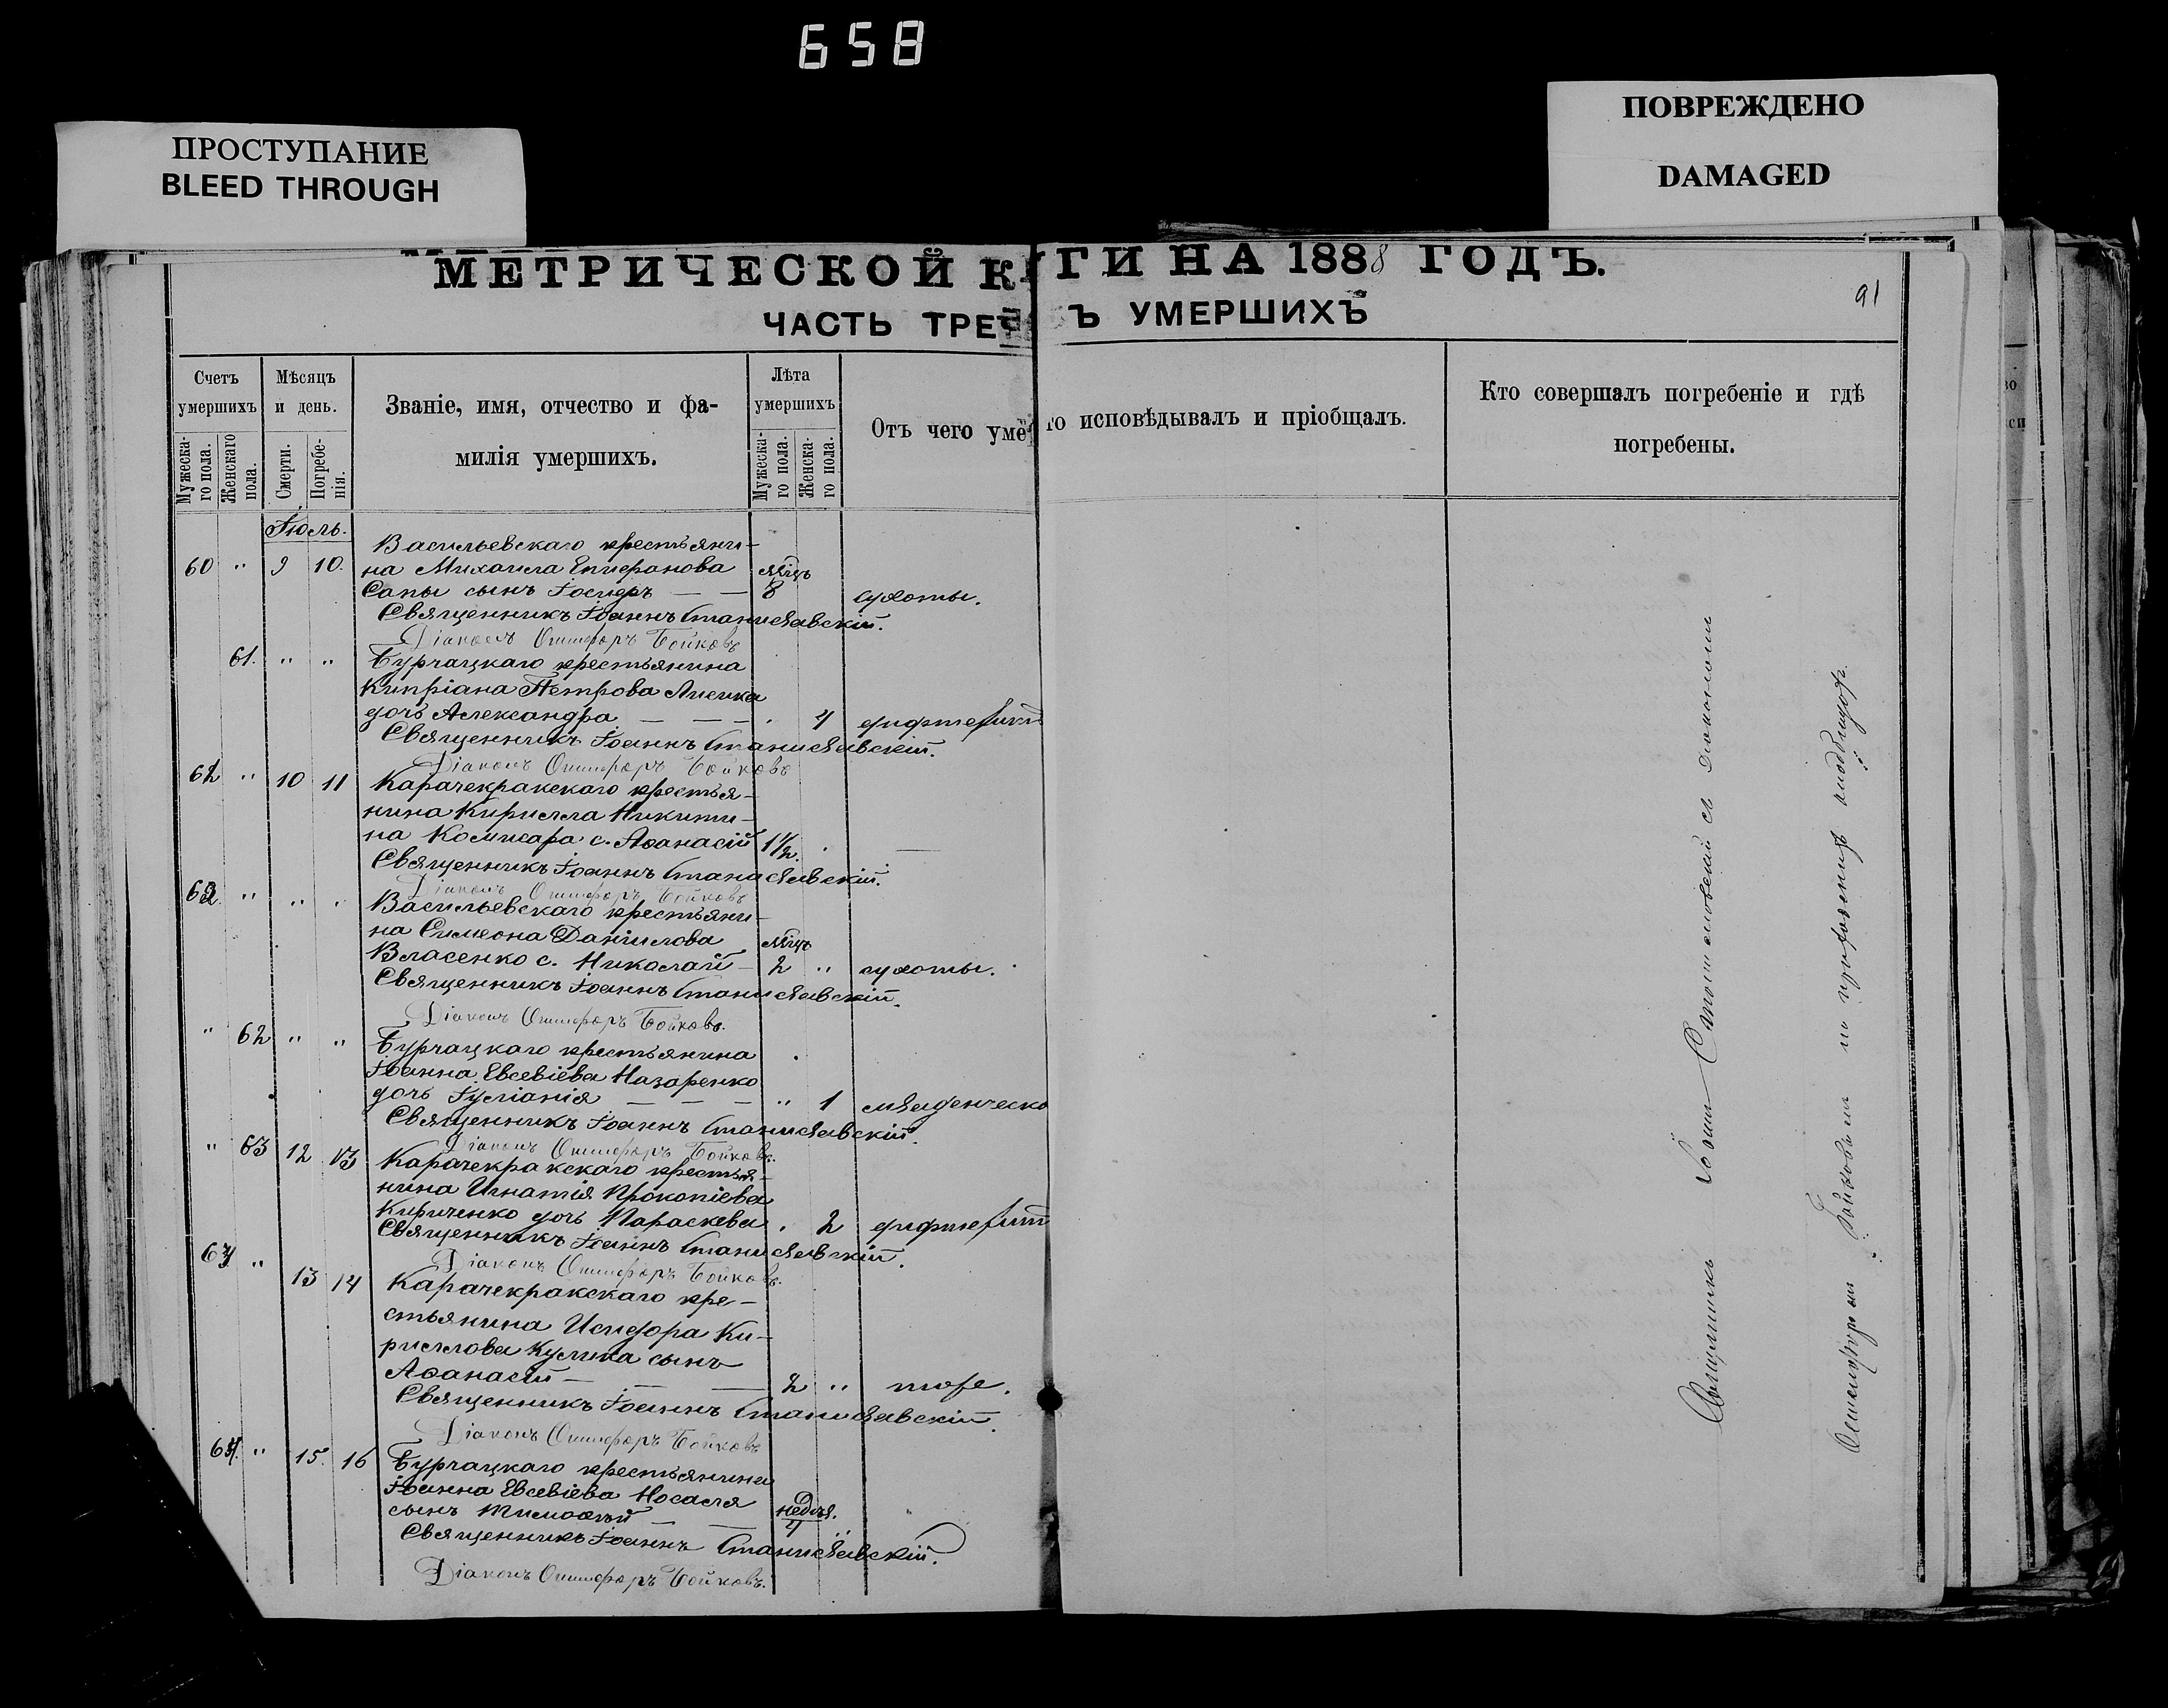 658
ПРОСТУПАНИЕ
BLEED THROUGH
ПОВРЕЖДЕНО
DAMAGED
МЕТРИЧЕСКОЙ К ГИ НА 1888 ГОДЪ.
91
ЧАСТЬ ТРЕ Ъ УМЕРШИХЪ
Счетъ умершихъ
Мужеска-го пола.
Женскаго пола.
Мѣсяцъ и день.
Смерти.
Погребе-нія.
Званіе, имя, отчество и фа-
милія умершихъ.
Лѣта умершихъ
Мужеска-го пола.
Женска-го пола.
Отъ чего умё
го исповѣдывалъ и пріобщалъ.
Кто совершалъ погребеніе и гдѣ
погребены.
Іюль.
Васильевскаго крестьяни-
60 " 9 10. на Михаила Епифанова мѣц
Сапы сынъ Іосифъ — — 8 сухоты.
Священникъ Іоаннъ Станиславскій.
Діаконъ Онисифоръ Бойковъ
61. " " Бурчацкаго крестьянина
Кипріана Петрова
дочь Александра — — — . 4 дифтерит
Священникъ Іоаннъ Станиславскій.
Діаконъ Онисифоръ Бойковъ
" 10 11 Карачекракскаго крестья-
нина Кирилла Никити-
на Комисара с. Аѳанасій 1½. . —
Священникъ Іоаннъ Станиславскій.
Діаконъ Онисифоръ Бойковъ
" " Васильевскаго крестьяни-
на Симеона Даніилова мѣц
Власенко с. Николай — 2 " сухоты.
Священникъ Іоаннъ Станиславскій.
Діаконъ Онисифоръ Бойковъ.
" 62 " " Бурчацкаго крестьянина
Іоанна Евсевіева Назаренко
дочь Іуліанія — — — " 1 младенческо
Священникъ Іоаннъ Станиславскій.
Діаконъ Онисифоръ Бойковъ.
" 63 12 13 Карачекракскаго крестья-
нина Игнатія Прокопіева
Кириченко дочь Параскева . 2 дифтерит
Священникъ Іоаннъ Станиславскій.
Діаконъ Онисифоръ Бойковъ.
" 13 14 Карачекракскаго кре-
стьянина Исидора Ки-
риллова Кулика сынъ
Аѳанасій — — — 2 " тоже.
Священникъ Іоаннъ Станиславскій.
Діаконъ Онисифоръ Бойковъ
" 15. 16 Бурчацкаго крестьянина
Іоанна Евсевіева Носаля
сынъ Тимоѳей — — недѣля. 4
Священникъ Іоаннъ Станиславскій.
Діаконъ Онисифоръ Бойковъ.
Священникъ Іоаннъ Станиславскій съ діакономъ
Бойковымъ на приходскомъ кладбищѣ.